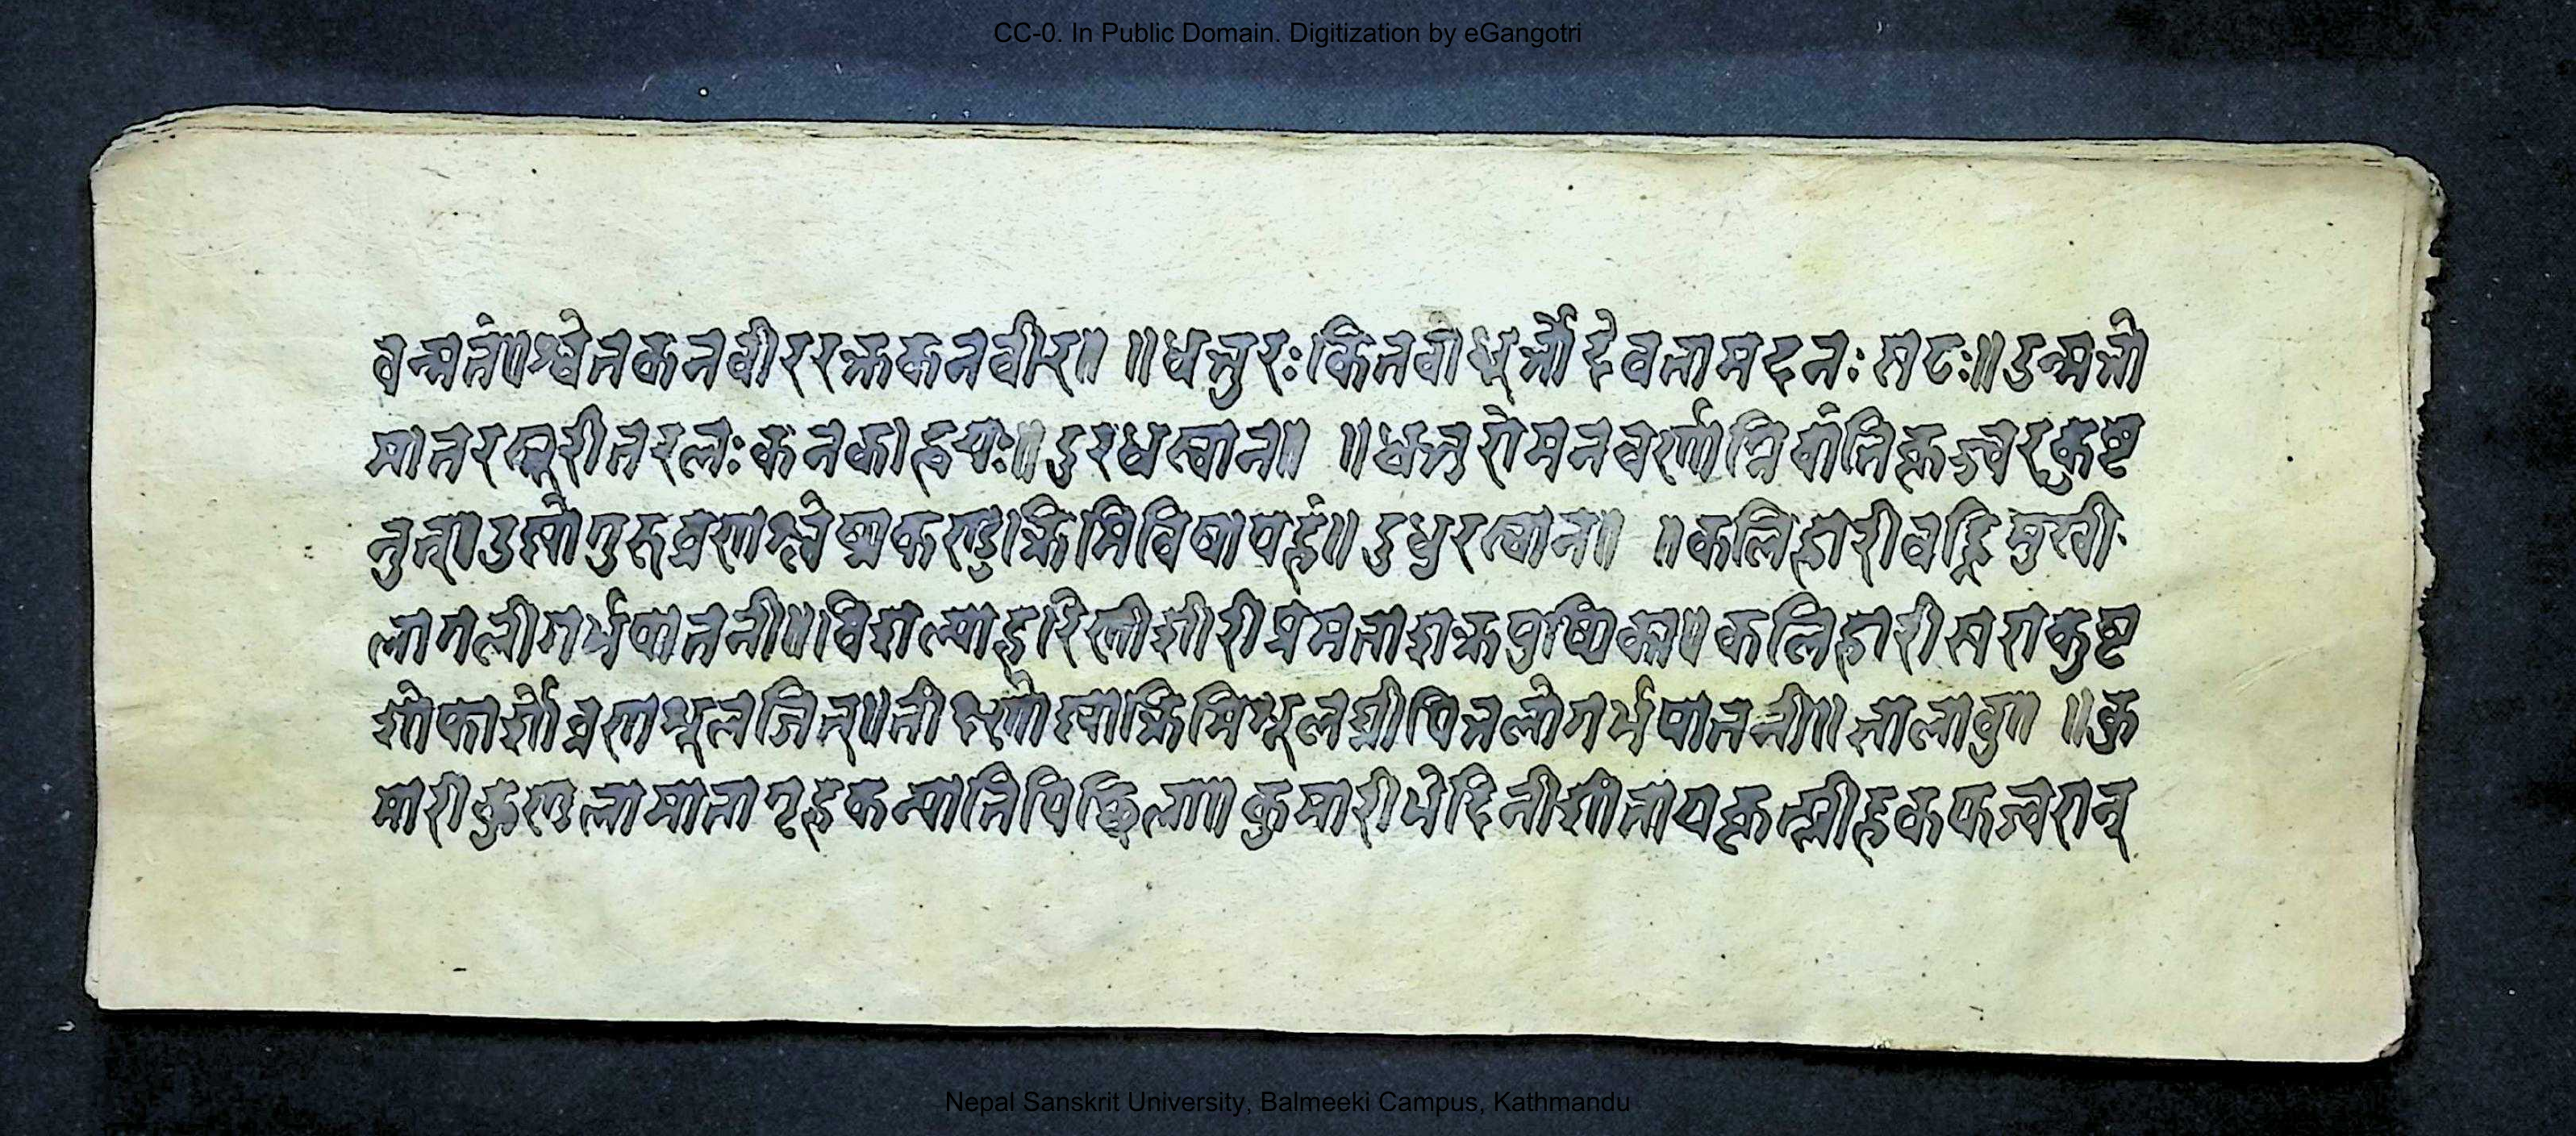 CC-0. In Public Domain. Digitization by eGangotri
वन्मतं॥श्वेतकनवीररक्तकनवीर॥ ॥धत्तुरः कितवो धूर्त्तो देवता मदनः सठः॥उन्मत्तो
मातरस्तूरी तरलः कनकाह्वयः॥ ॥धत्तुरो मदनवर्णाग्निवातिकृज्ज्वरकुष्ट
नुत्॥उष्णो गुरुव्रणश्लेष्मकण्डुक्रिमिविषापहं॥ ॥कलिहारी वह्निमुखी
लागली गर्भपातनी॥विशल्या हारिणी शीरी शक्रपुष्पिका॥कलिहारी सरा कुष्ट
शोफार्शोव्रणशूलजित्॥तीक्ष्णोष्णा क्रिमिशूलघ्नी पित्तलो गर्भपातनी॥ ॥कु
मारी मण्डला माता गृहकन्यातिपिच्छिला॥कुमारी भेदिनी शीता यकृत्प्लीहकफज्वरान्
Nepal Sanskrit University, Balmeeki Campus, Kathmandu